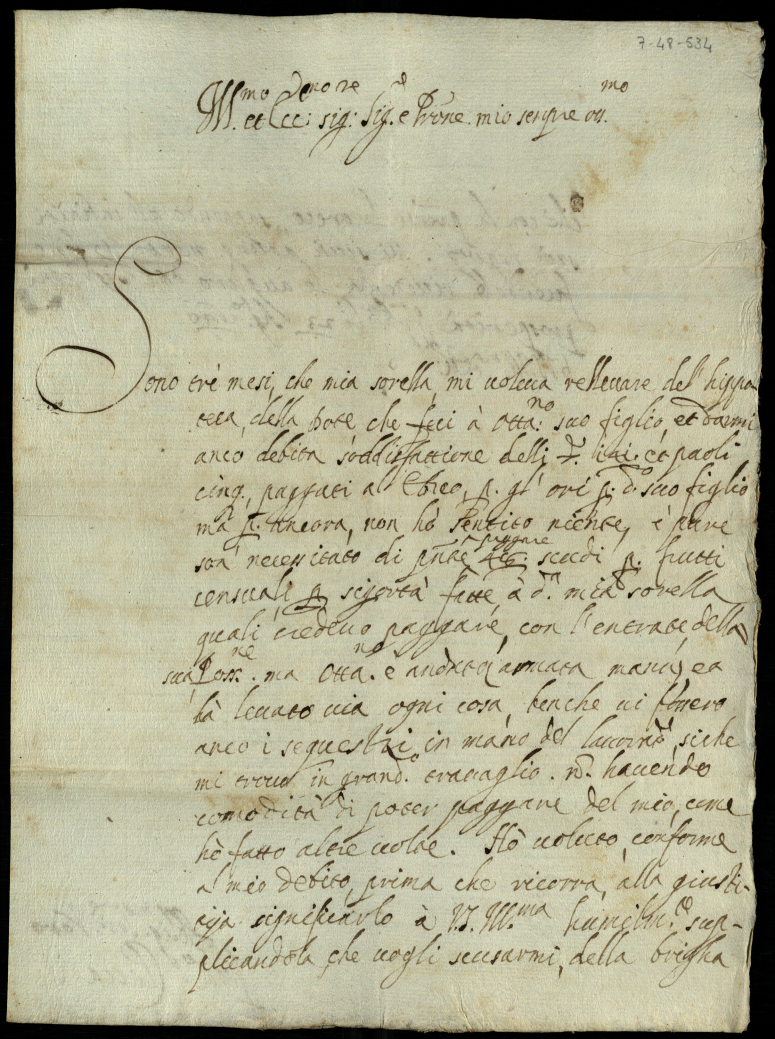 7-48-534
Ill.mo et Ecc: sig: Sig.e e Prone mio sempre oss.mo
Sono trè mesi, che mia sorella, mi voleva rellevare dell' hippo
teca, della dote che feci à Otta.no suo figlio, et darmi
anco debita soddisfattione delli
cinq., paggati a Ebreo, p. gl' ori p. d.o suo figlio
mà p. ancora, non hò sentito niente, è pure
son necessitato di paggare scudi p. frutti
censuali p. sigortà fatte à d.a mia sorella
quali credevo paggare, con l'entrate della
sua Poss.ne ma Otta.no è andato armata manu, et
hà levato via ogni cosa, benche vi fossero
anco i sequestri in mano del lavor.e, siche
mi trovo in grand.o travaglio. nō. havendo
comodità di poter paggare del mio, come
hò fatto altre volte. Hò voluto, conforme
al mio debito, prima che ricorra, alla giusti-
tija significarlo à V.S. Ill.ma humilm.e sup-
plicandola, che vogli scusarmi, della brigha